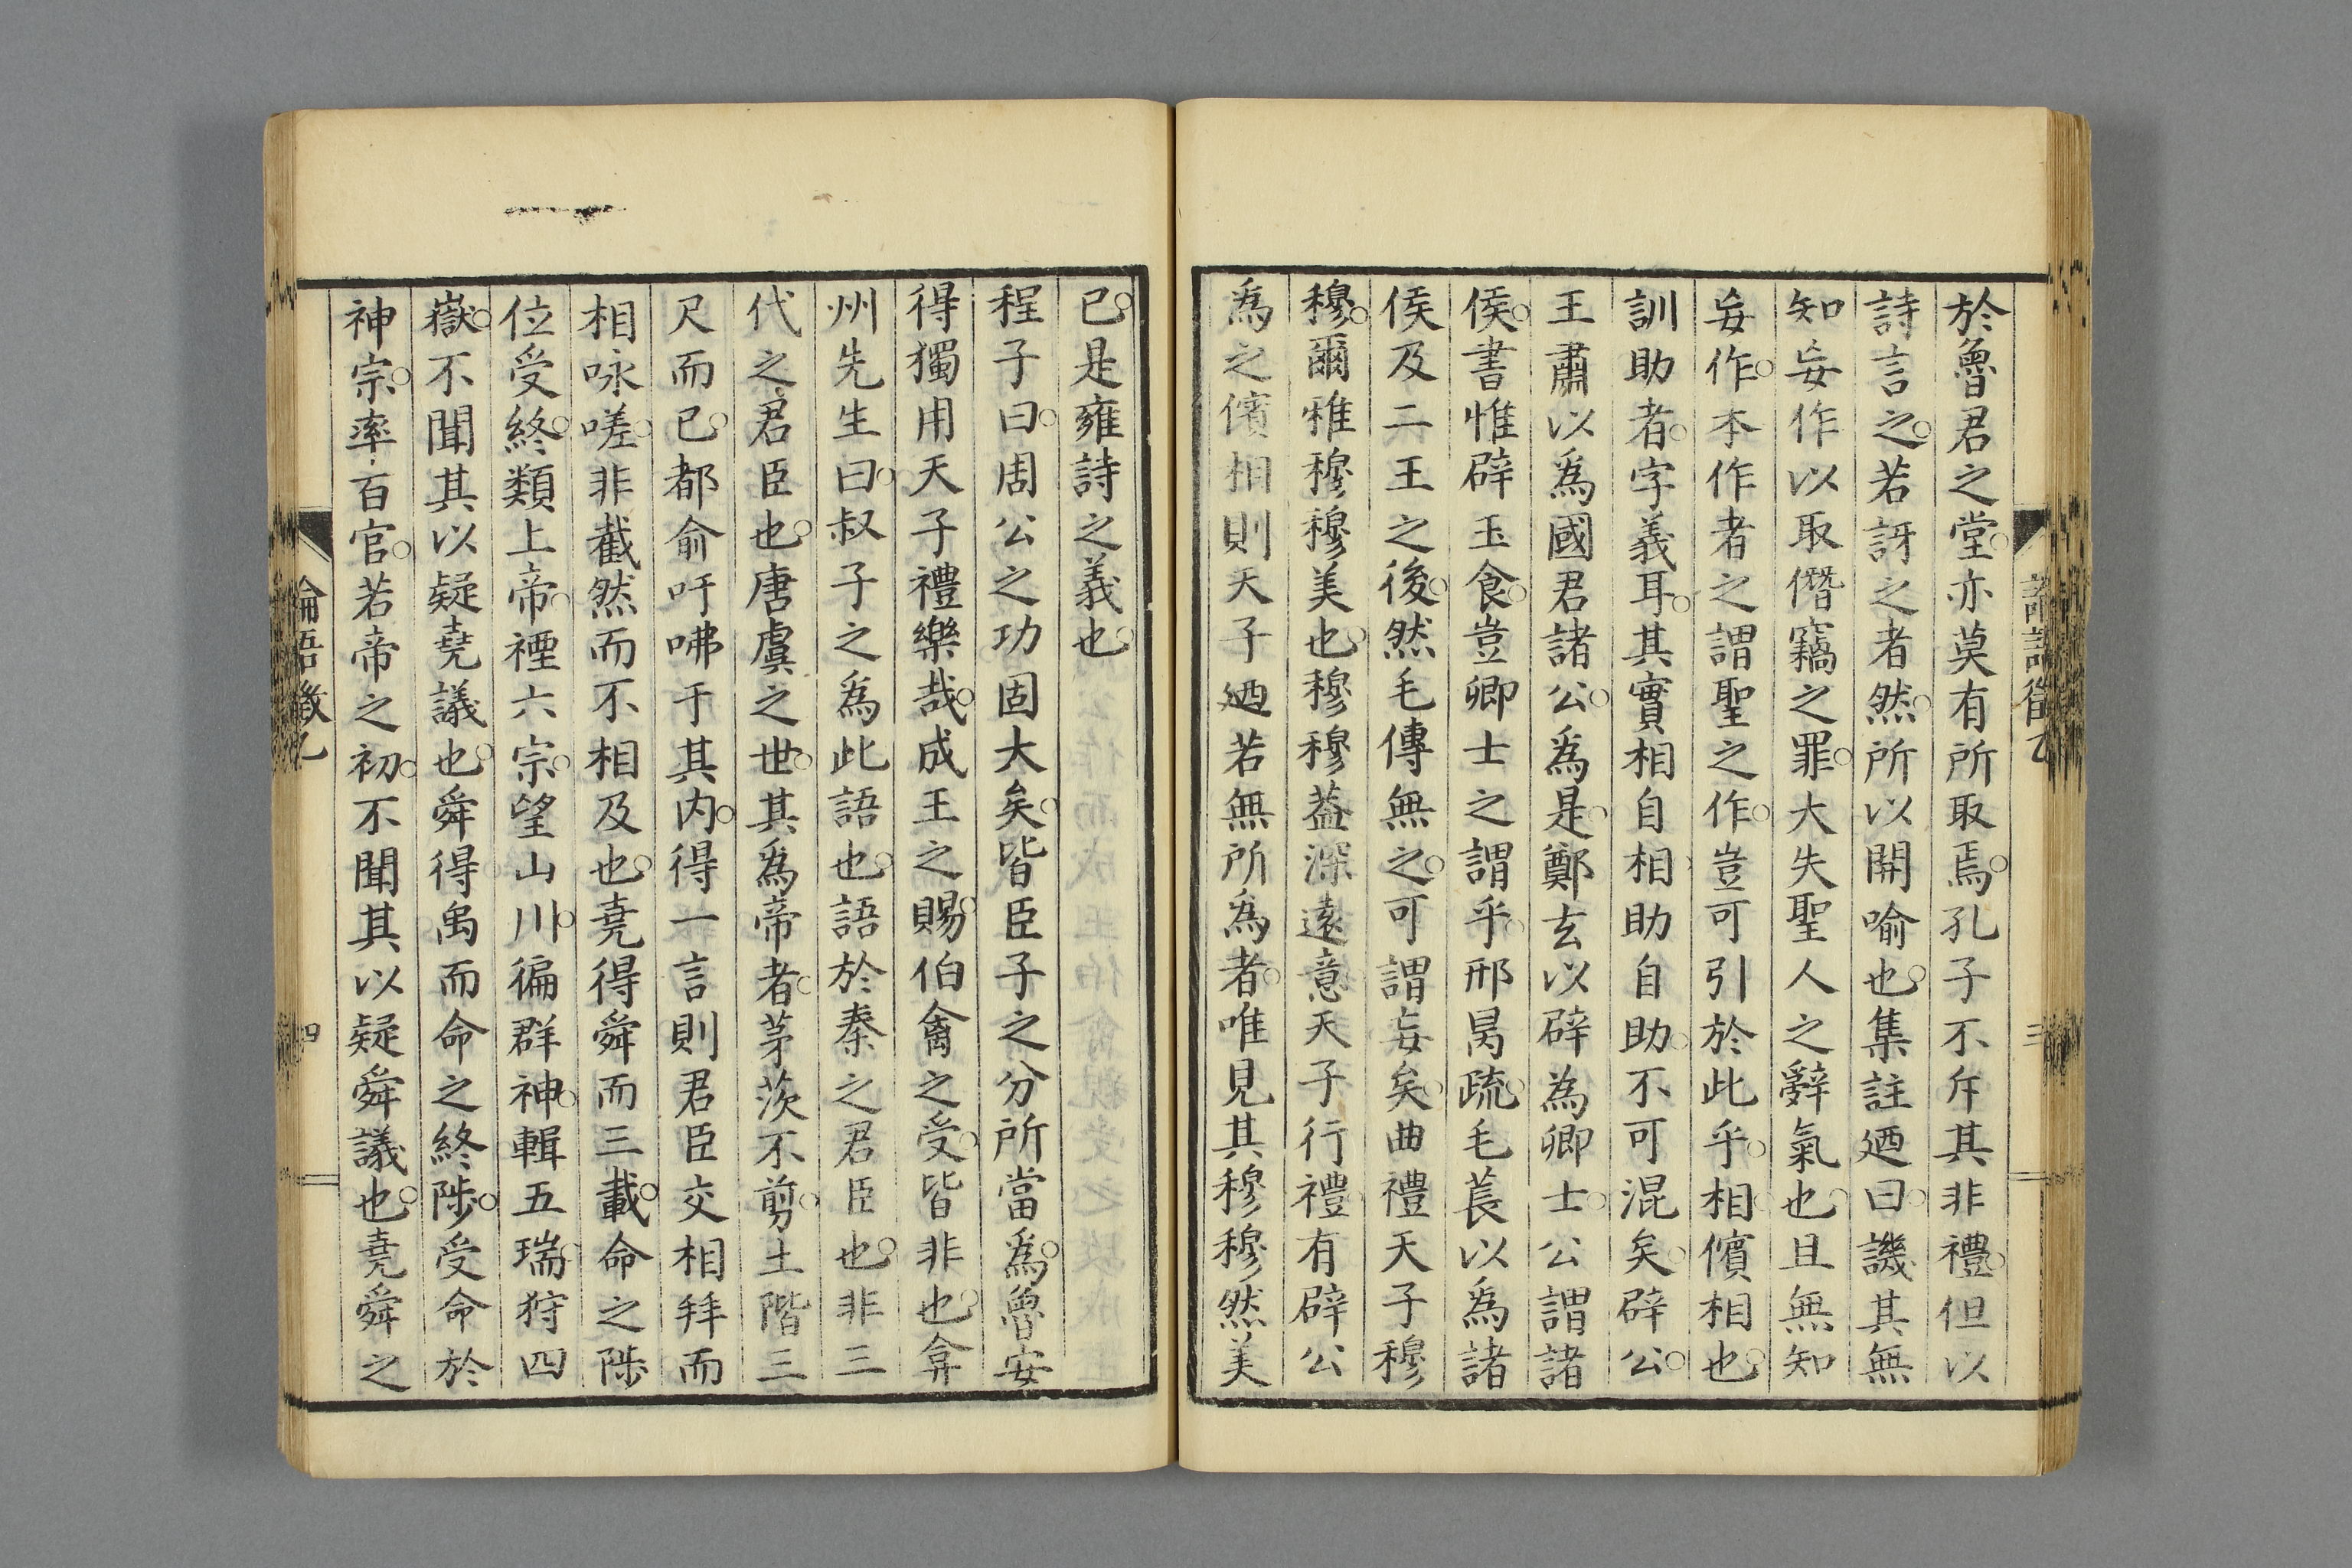 於魯君之堂亦莫有所取焉孔子不斥其非禮但以
詩言之若訝之者然所以開喻也集註廼曰譏其無
知妄作以取僭竊之罪大失聖人之辭氣也且無知
妄作本作者之謂聖之作豈可引於此乎相儐相也
訓助者字義耳其實相自相助自助不可混矣辟公
王肅以爲國君諸公爲是鄭玄以辟為卿士公謂諸
侯書惟辟玉食豈卿士之謂乎邢昺疏毛萇以爲諸
侯及二王之後然毛傳無之可謂妄矣曲禮天子穆
穆爾雅穆穆美也穆穆蓋深遠意天子行禮有辟公
爲之儐相則天子廼若無所為者唯見其穆穆然美
論語徵乙
三
已是雍詩之義也
程子曰周公之功固大矣皆臣子之分所當爲魯安
得獨用天子禮樂哉成王之賜伯禽之受皆非也弇
州先生曰叔子之爲此語也語於秦之君臣也非三
代之君臣也唐虞之世其爲帝者茅茨不剪土階三
尺而已都俞吁咈于其内得一言則君臣交相拜而
相咏嗟非截然而不相及也堯得舜而三載命之陟
位受終類上帝禋六宗望山川徧群神輯五瑞狩四
嶽不聞其以疑堯議也舜得禹而命之終陟受命於
神宗率百官若帝之初不聞其以疑舜議也堯舜之
論語徵乙
四